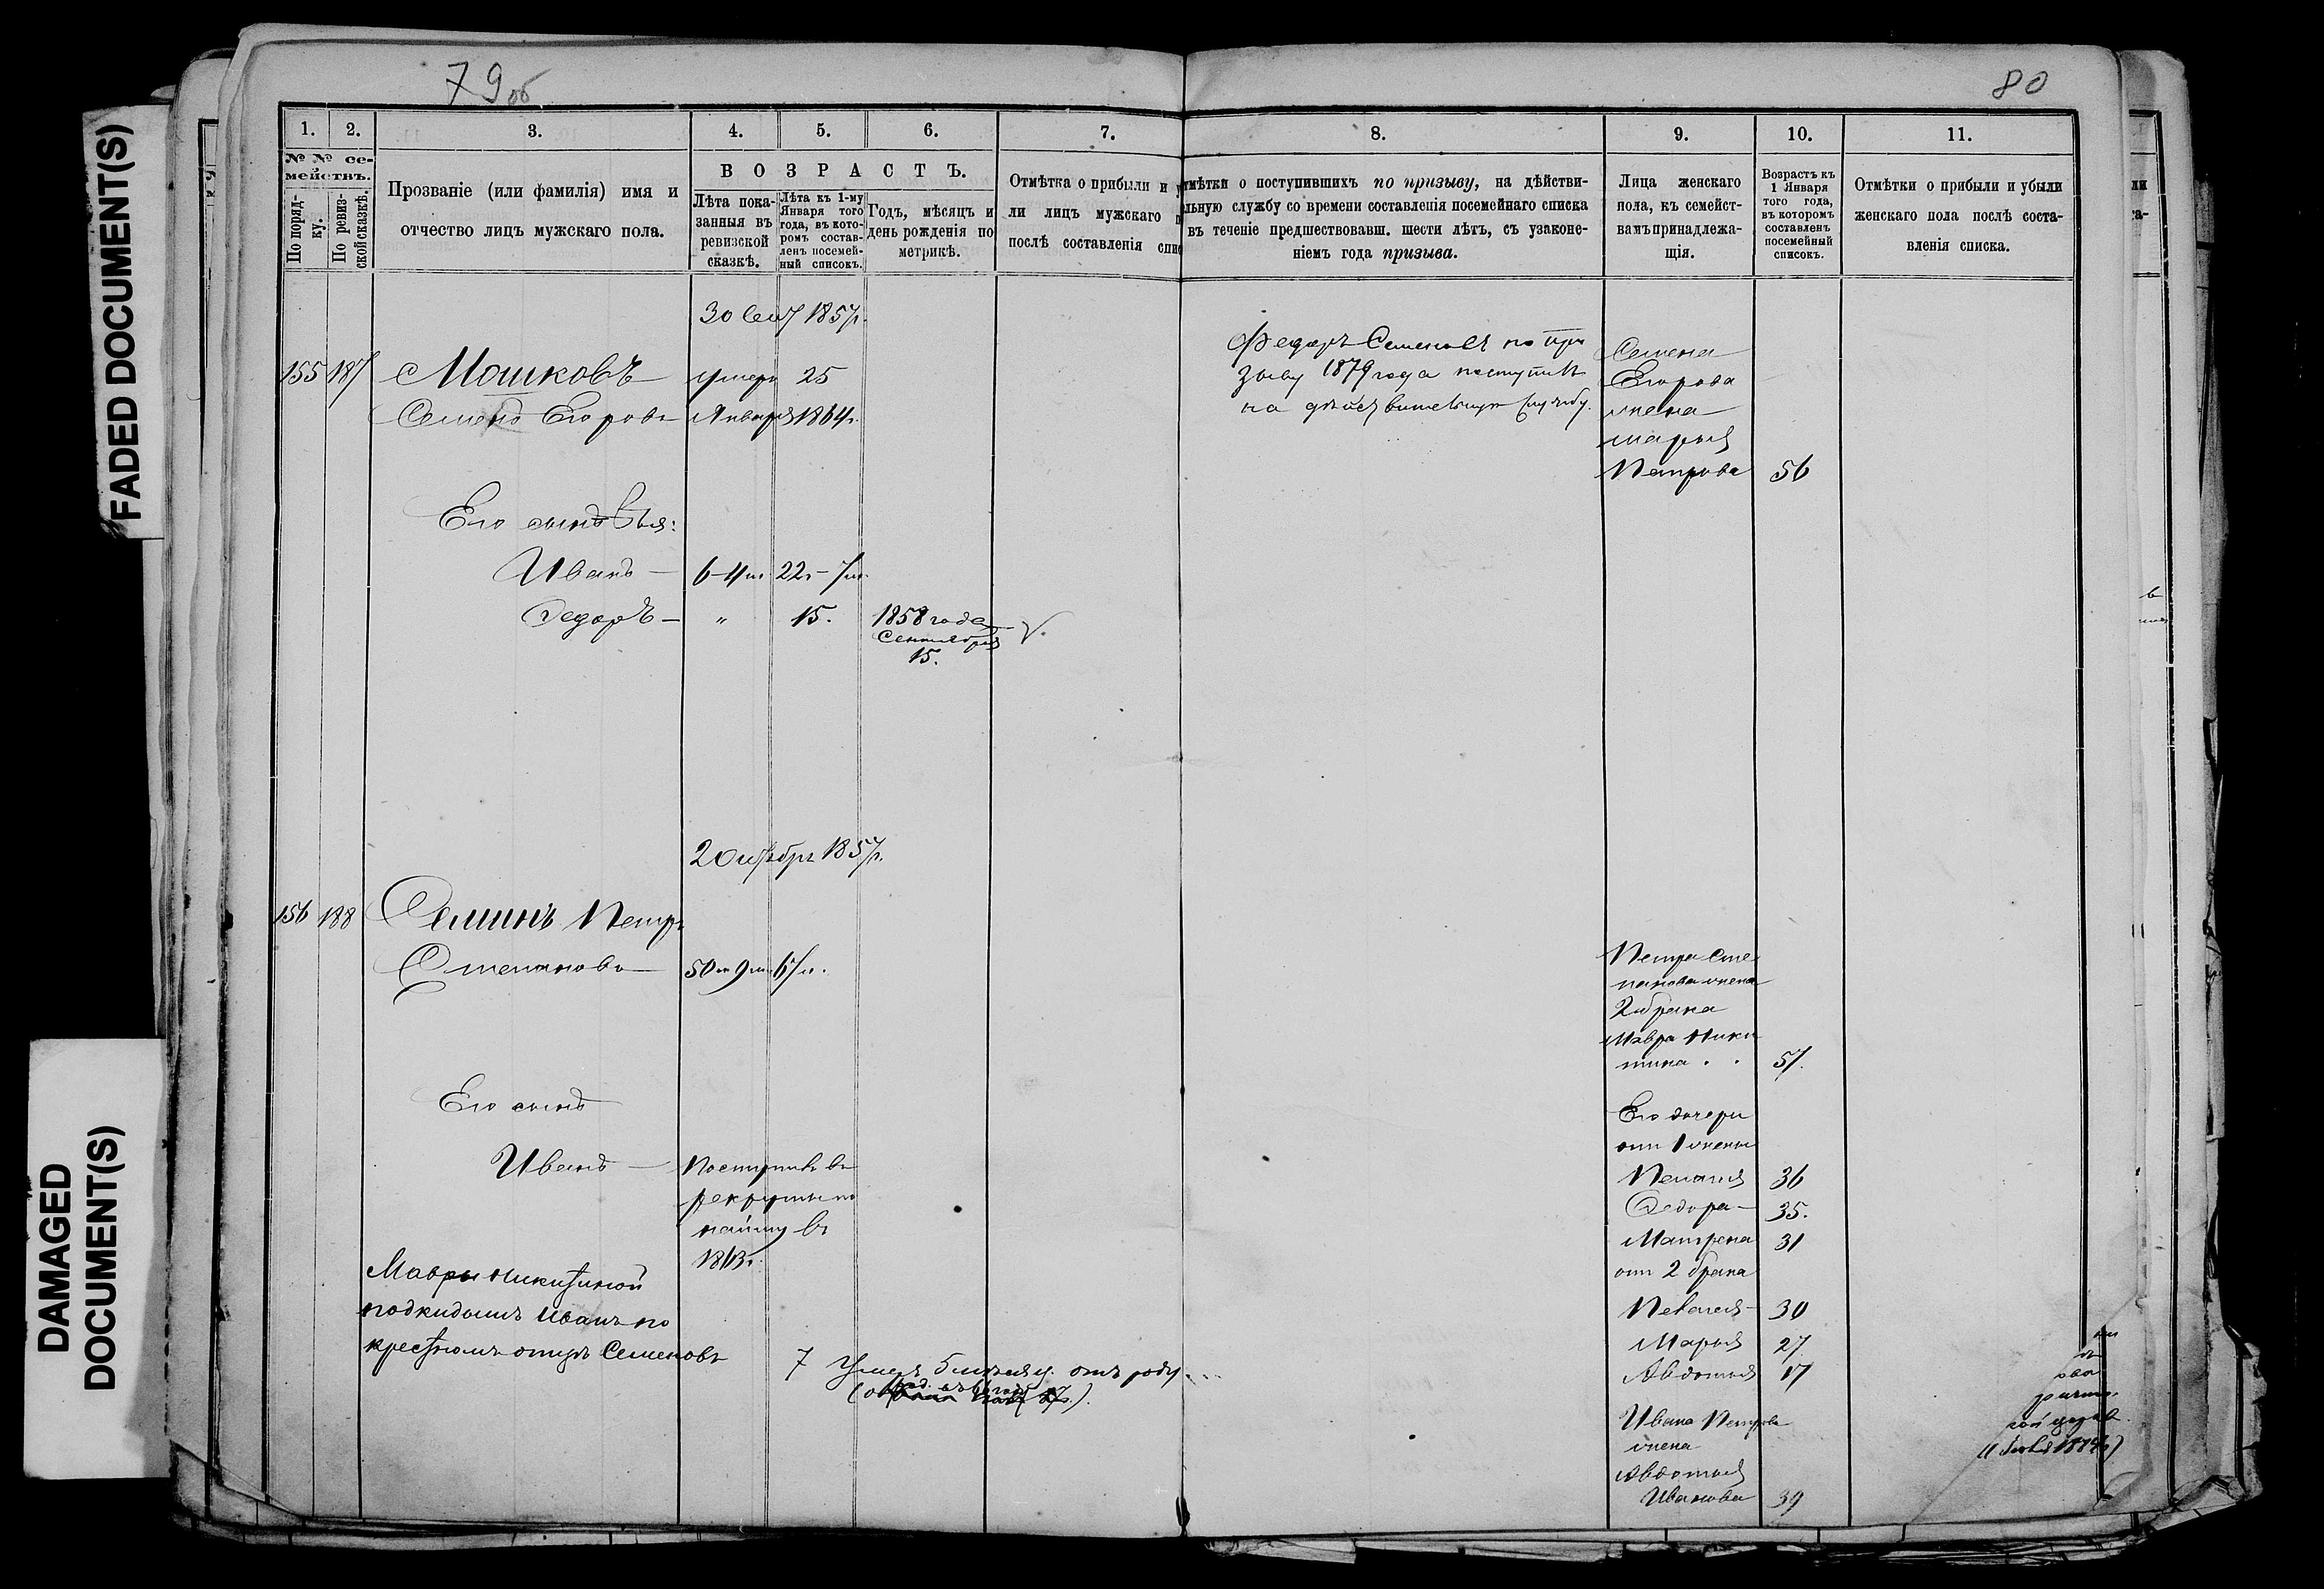 FADED DOCUMENT(S)
DAMAGED
DOCUMENT(S)
79об
80
1.
2.
3.
4.
5.
6.
7.
8.
9.
10.
11.
№ № се-
мействъ.
По поряд-
ку.
По ревиз-
ской сказкѣ.
Прозваніе (или фамилія) имя и
отчество лицъ мужскаго пола.
ВОЗРАСТЪ.
Лѣта пока-
занныя въ
ревизской
сказкѣ.
Лѣта къ 1-му
Января того
года, въ кото-
ромъ состав-
ленъ посемей-
ный списокъ.
Годъ, мѣсяцъ и
день рожденія по
метрикѣ.
Отмѣтка о прибыли и у
ли лицъ мужскаго п
послѣ составленія спис
тмѣтки о поступившихъ по призыву, на дѣйстви-
льную службу со времени составленія посемейнаго списка
въ теченіе предшествовавш. шести лѣтъ, съ узаконе-
ніемъ года призыва.
Лица женскаго
пола, къ семейст-
вамъ принадлежа-
щія.
Возрастъ къ
1 Января
того года,
въ которомъ
составленъ
посемейный
списокъ.
Отмѣтки о прибыли и убыли
женскаго пола послѣ соста-
вленія списка.
30 Сент 1857г.
155 187 Мошковъ умеръ 25
Семенъ Егоровъ Января 1864г.
Его сыновья:
Иванъ — 6-4м. 22-7м.
Федоръ — " 15. 1858 года
Сентября
15.
Федоръ Семеновъ по при
зыву 1879 года поступилъ
на дѣйствительную службу.
Семена
Егорова
жена
Марья
Петрова 56
2 Октября 1857г.
156 188 Семинъ Петръ
Степановъ 50 9м 67л.
Его сынъ
Иванъ — Поступилъ въ
рекруты по
найму въ
1863г.
Мавры Никитиной
подкидышъ Иванъ по
крестномъ отцѣ Семеновъ
7 Умеръ отъ роду
Петра Сте
панова жена
2 брака
Мавра Ники
тина . . 57.
Его дочери
отъ 1 жены
Пелагея 36
Федора — 35.
Матрена 31
отъ 2 брака
Пелагея — 30
Марья 27
Авдотья 17
Ивана Петрова
жена
Авдотья
Иванова 39